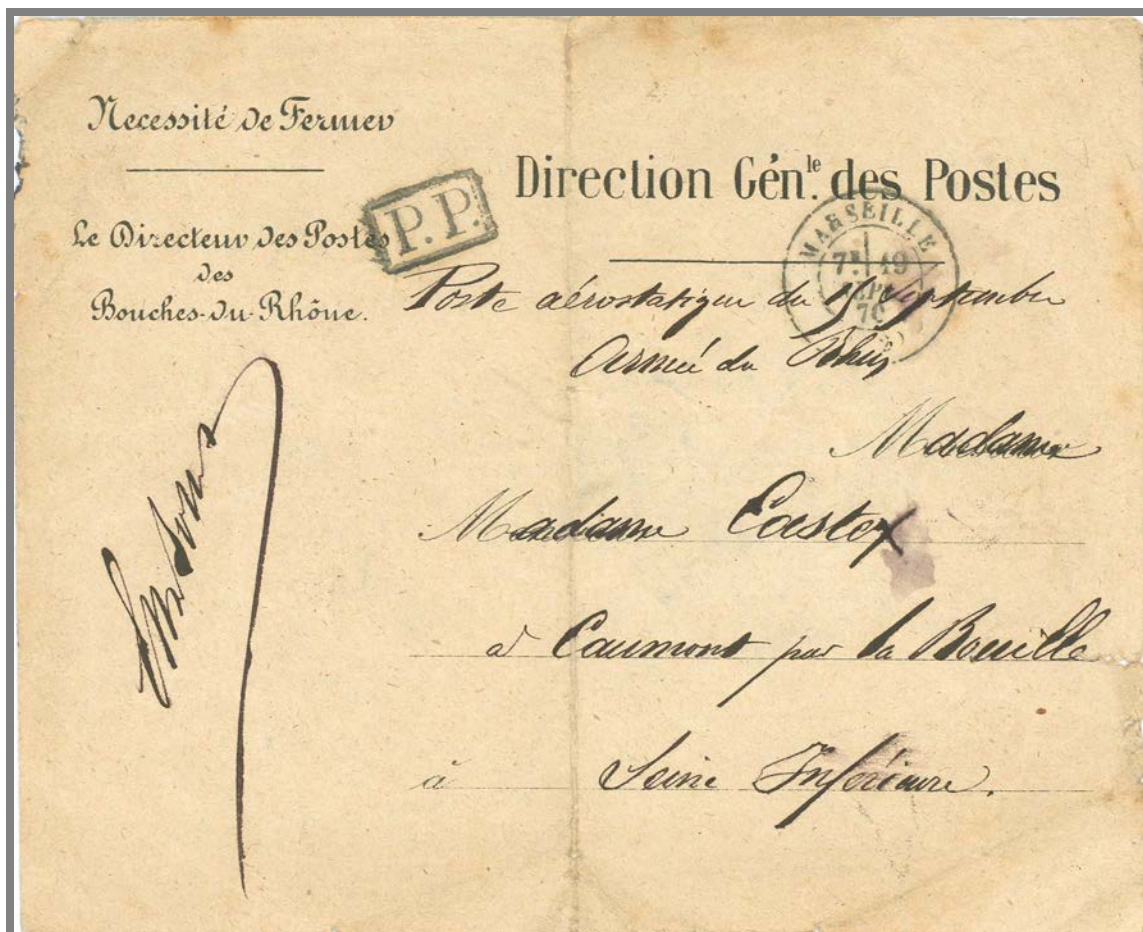 Necessité de Fermer
Le Directeur des Postes
des
Bouches-du-Rhône.
P.P.
Direction Gén.le des Postes
MARSEILLE
7E 19
SEPT
70
Poste aérostatique du 15 Septembre
Armée du Rhin
Madame
Madame Castex
à Caumont par la Bouille
à Seine Inférieure.